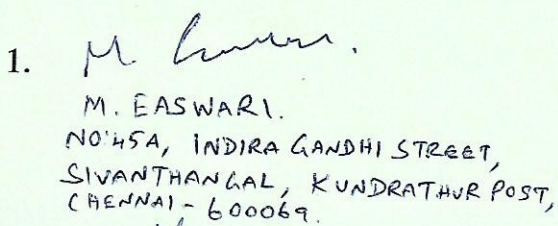 1. M.
M. EASWARI.
NO:45A, INDIRA GANDHI STREET,
SIVANTHANGAL, KUNDRATHUR POST,
CHENNAI - 600069.